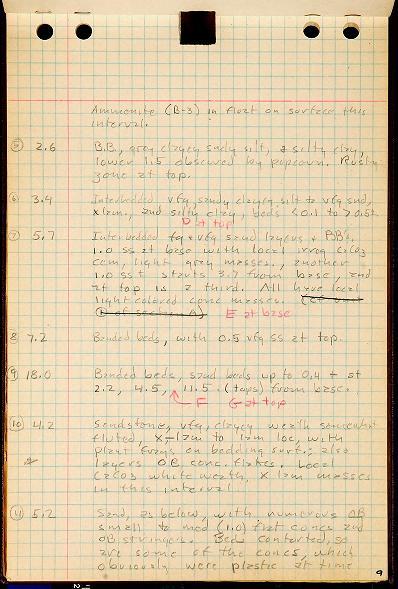 Ammonite (B-3) in float on surface this
interval.
5 2.6 B.B., grey clayey sndy silt, & silty clay,
lower 1.5 obscured by popcorn. Rusty
zone at top.
6 3.4 Interbedded vfg, sandy clayey silt to vfg snd,
x lam, and silty clay, beds <0.1 to >0.5t.
D at top
7 5.7 Interbedded fg & vfg sand layers & BB's.
1.0 ss at base with local irreg CaCO3
cem, light grey masses, another
1.0 sst starts 3.7 from base, and
at top is a third. All have local
light colored conc masses. (
① of section A) E at base
8 7.2 Banded beds, with 0.5 vfg ss at top.
9 18.0 Banded beds, sand beds up to 0.4 + at
2.2, 4.5, 11.5 (tops) from base.
F G at top
10 4.2 Sandstone, vfg, clayey weath somewhat
fluted, x-lam to lam loc, with
plant frags on bedding surf.; also
layers OB conc. flakes. Local
CaCO3 white weath, x lam masses
in this interval
11 5.2 Sand, as below, with numerous OB
small to med (1.0) flat concs and
OB stringers. Bed contorted, so
are some of the concs, which
obviously were plastic at time
9